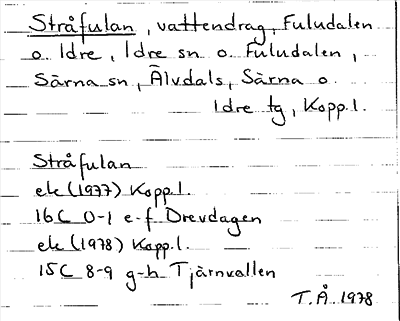 Stråfulan, vattendrag, Fuludalen
o. Idre, Idre sn o. Fuludalen,
Särna sn, Älvdals, Särna o.
Idre tg, Kopp.l.
Stråfulan
ek (1977) Kopp.l.
16C 0-1 e-f Drevdagen
ek (1978) Kopp.l.
15C 8-9 g-h Tjärnvallen
T.Å 1978